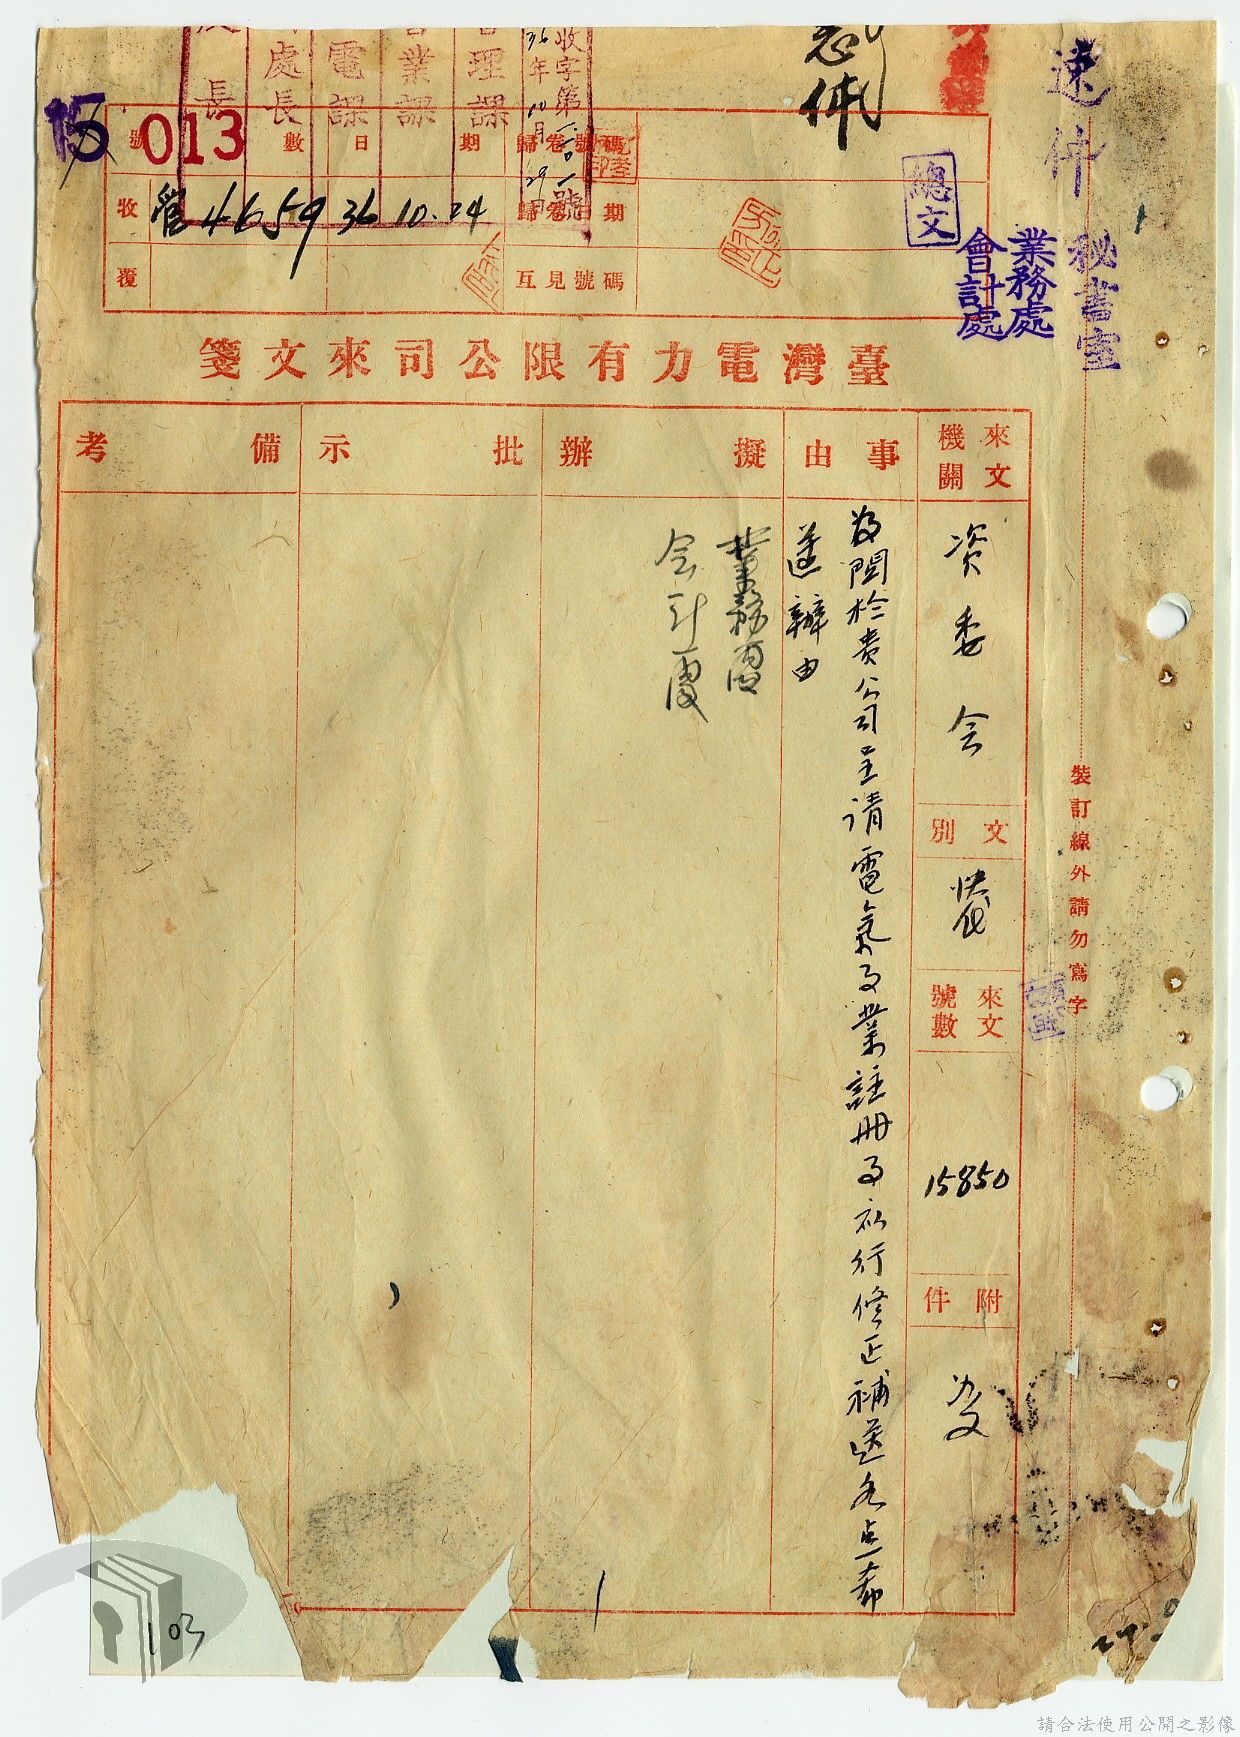 速件
秘書室
業務處
會計處
總文
長
處長
電課
業課
理課
收字第
36年10月29日
號
013
數
日
期
歸卷號碼
收
管4659
36 10.24
歸卷日期
覆
互見號碼
臺灣電力有限公司來文箋
來文機關
資委会
文別
快代
來文號數
15850
附件
事由
為関於貴公司呈請電氣事業註冊事衣行修正補送各点希
遵辦由
擬辦
業務處
会計處
批示
備考
裝訂線外請勿寫字
103
請合法使用公開之影像